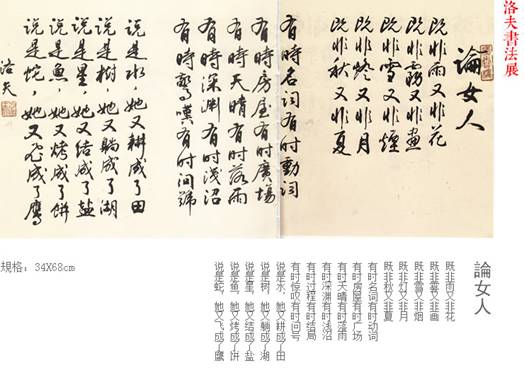 洛夫書法展
論女人
既非雨又非花
既非霧又非畫
既非雪又非煙
既非燈又非月
既非秋又非夏
有時名詞有時動詞
有時房屋有時廣場
有時天晴有時落雨
有時深淵有時淺沼
有時驚嘆有时问號
说是水,她又耕成了田
说是樹,她又躺成了湖
说是星,她又结成了鹽
说是魚,她又烤成了餅
说是蛇,她又飛成了鷹
洛夫
規格：34X68cm
論女人
既非雨又非花
既非雾又非画
既非雪又非烟
既非灯又非月
既非秋又非夏
有时名词有时动词
有时房屋有时广场
有时天晴有时落雨
有时深渊有时浅沼
有时过程有时结局
有时惊叹有时问号
说是水，她又耕成了田
说是树，她又躺成了湖
说是星，她又结成了盐
说是鱼，她又烤成了饼
说是蛇，她又飞成了鹰